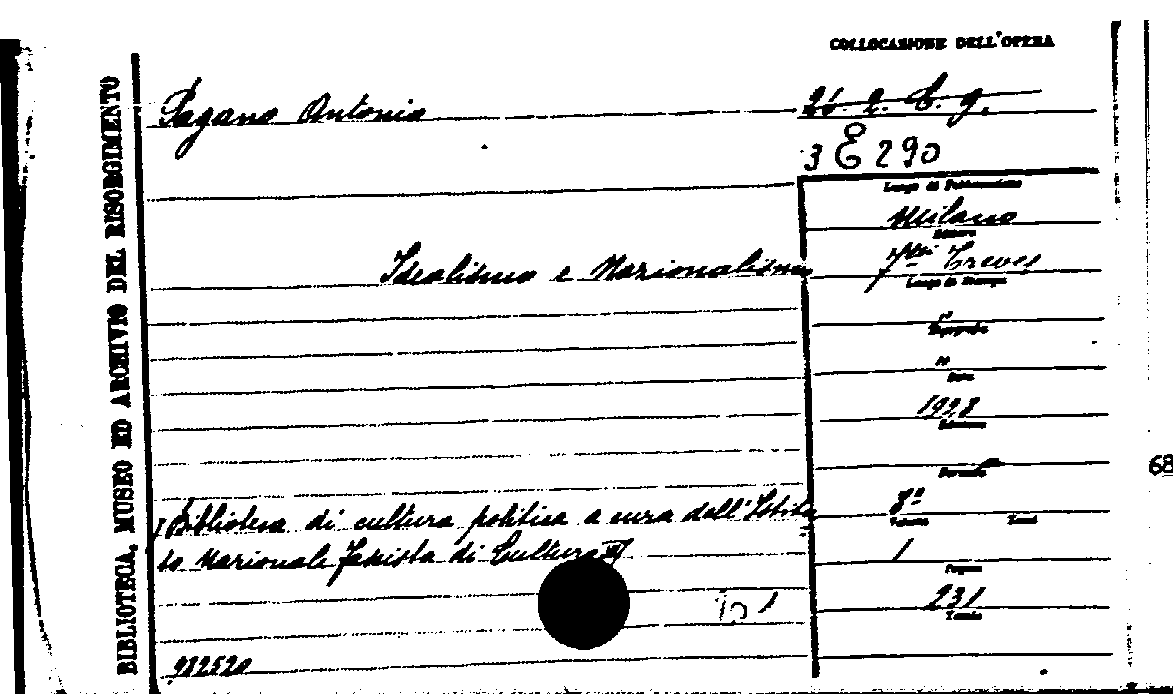 COLLOCAZIONE DELL'OPERA
BIBLIOTECA, MUSEO ED ARCHIVIO DEL RISORGIMENTO
Pagano Antonio
21. 2. C. 9.
3 E 290
Luogo di Pubblicazione
Milano
Editore
F.lli Treves
Luogo di Stampa
"
Tipografia
"
Data
1928
Edizione
Formato
8°
Volume Tomi
1
Pagine
231
Tavole
Idealismo e Nazionalismo
(Biblioteca di cultura politica a cura dell'Istitu
to Nazionale Fascista di Cultura
982520
68